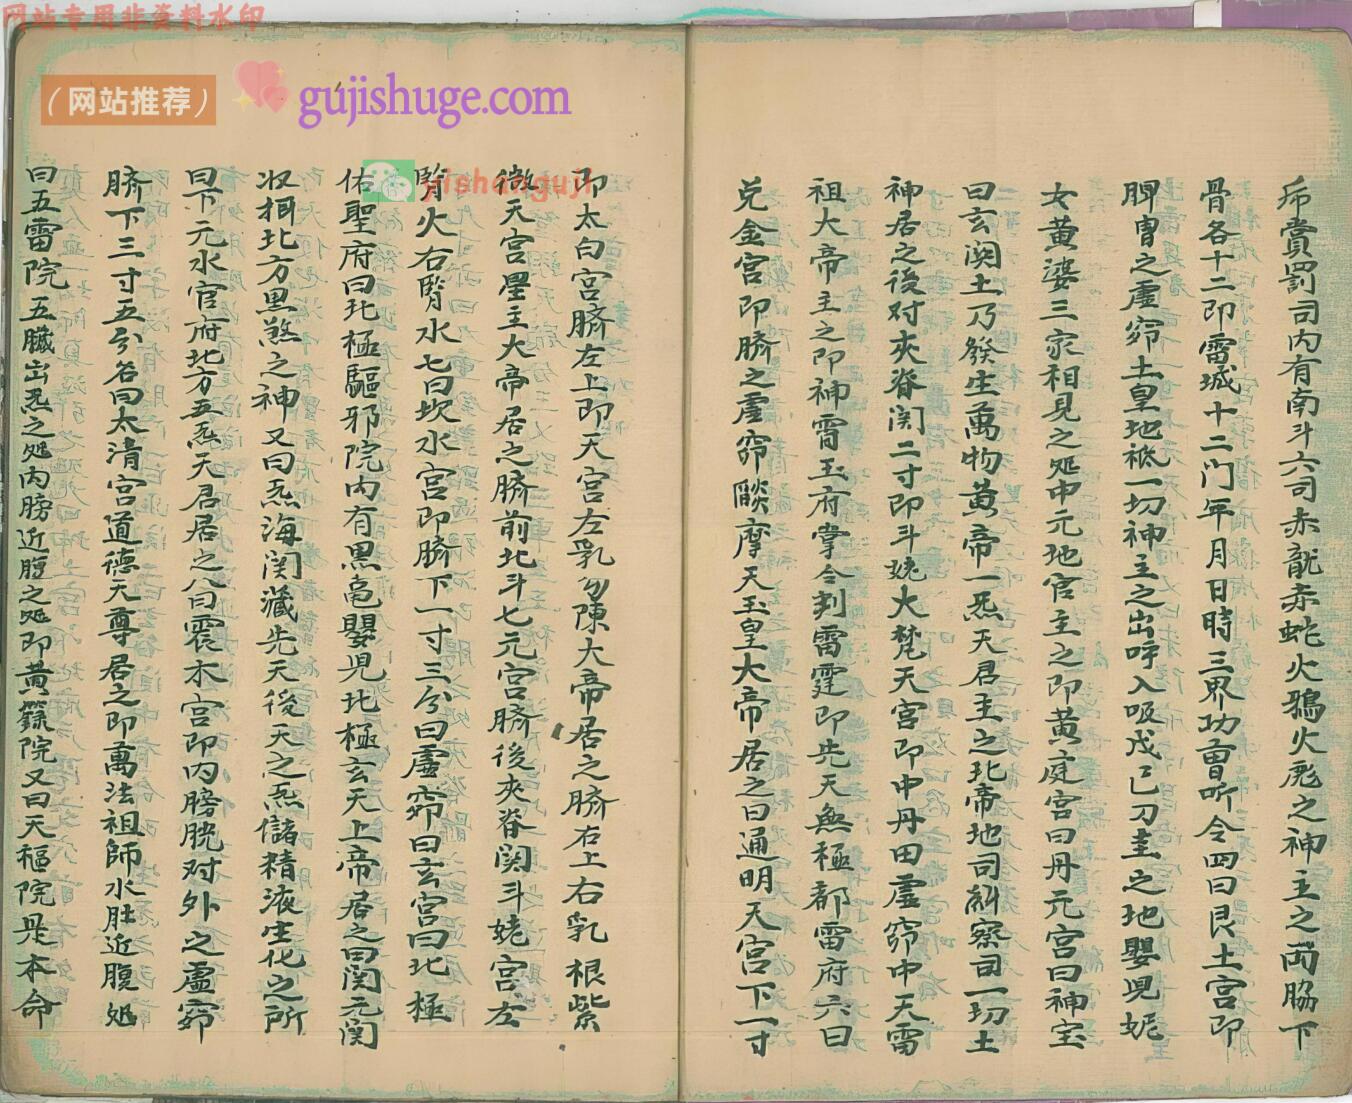 网站专用非资料水印
(网站推荐)
gujishuge.com
yishanguji
疟賞罰司内有南斗六司赤龍赤蛇火鴉火彪之神主之两脇下
骨各十二即雷城十二门年月日時三界功曹听令四曰艮土宫即
脾胃之虚窍土皇地祗一切神主之出呼入吸戊己刀圭之地嬰児妮
女黄婆三家相見之処中元地官主之即黄庭宫曰丹元宫曰神宝
曰玄関土乃發生萬物黄帝一炁天君主之北帝地司糾察司一切土
神居之後对夾脊関二寸即斗姥大梵天宫即中丹田虚窍中天雷
祖大帝主之即神霄玉府掌令判雷霆即先天無極都雷府六曰
兑金宫即臍之虚窍燄摩天玉皇大帝居之曰通明天宫下一寸
即太白宫臍左上即天宫左乳勾陳大帝居之臍右上右乳根紫
微天宫星主大帝居之臍前北斗七元宫臍後夾脊関斗姥宫左
腎火右腎水七曰坎水宫即臍下一寸三分曰虚窍曰玄宫曰北極
佑聖府曰北極驅邪院内有黑黾嬰児北極玄天上帝居之曰関元関
收相北方黑煞之神又曰炁海関藏先天後天之炁儲精液生化之所
曰下元水官府北方五炁天君居之八曰震木宫即内膀胱对外之虚窍
臍下三寸五分名曰太清宫道德天尊居之即萬法祖師水肚近腹処
曰五雷院五臟出炁之処内膀近腹之処即黄籙院又曰天樞院是本命